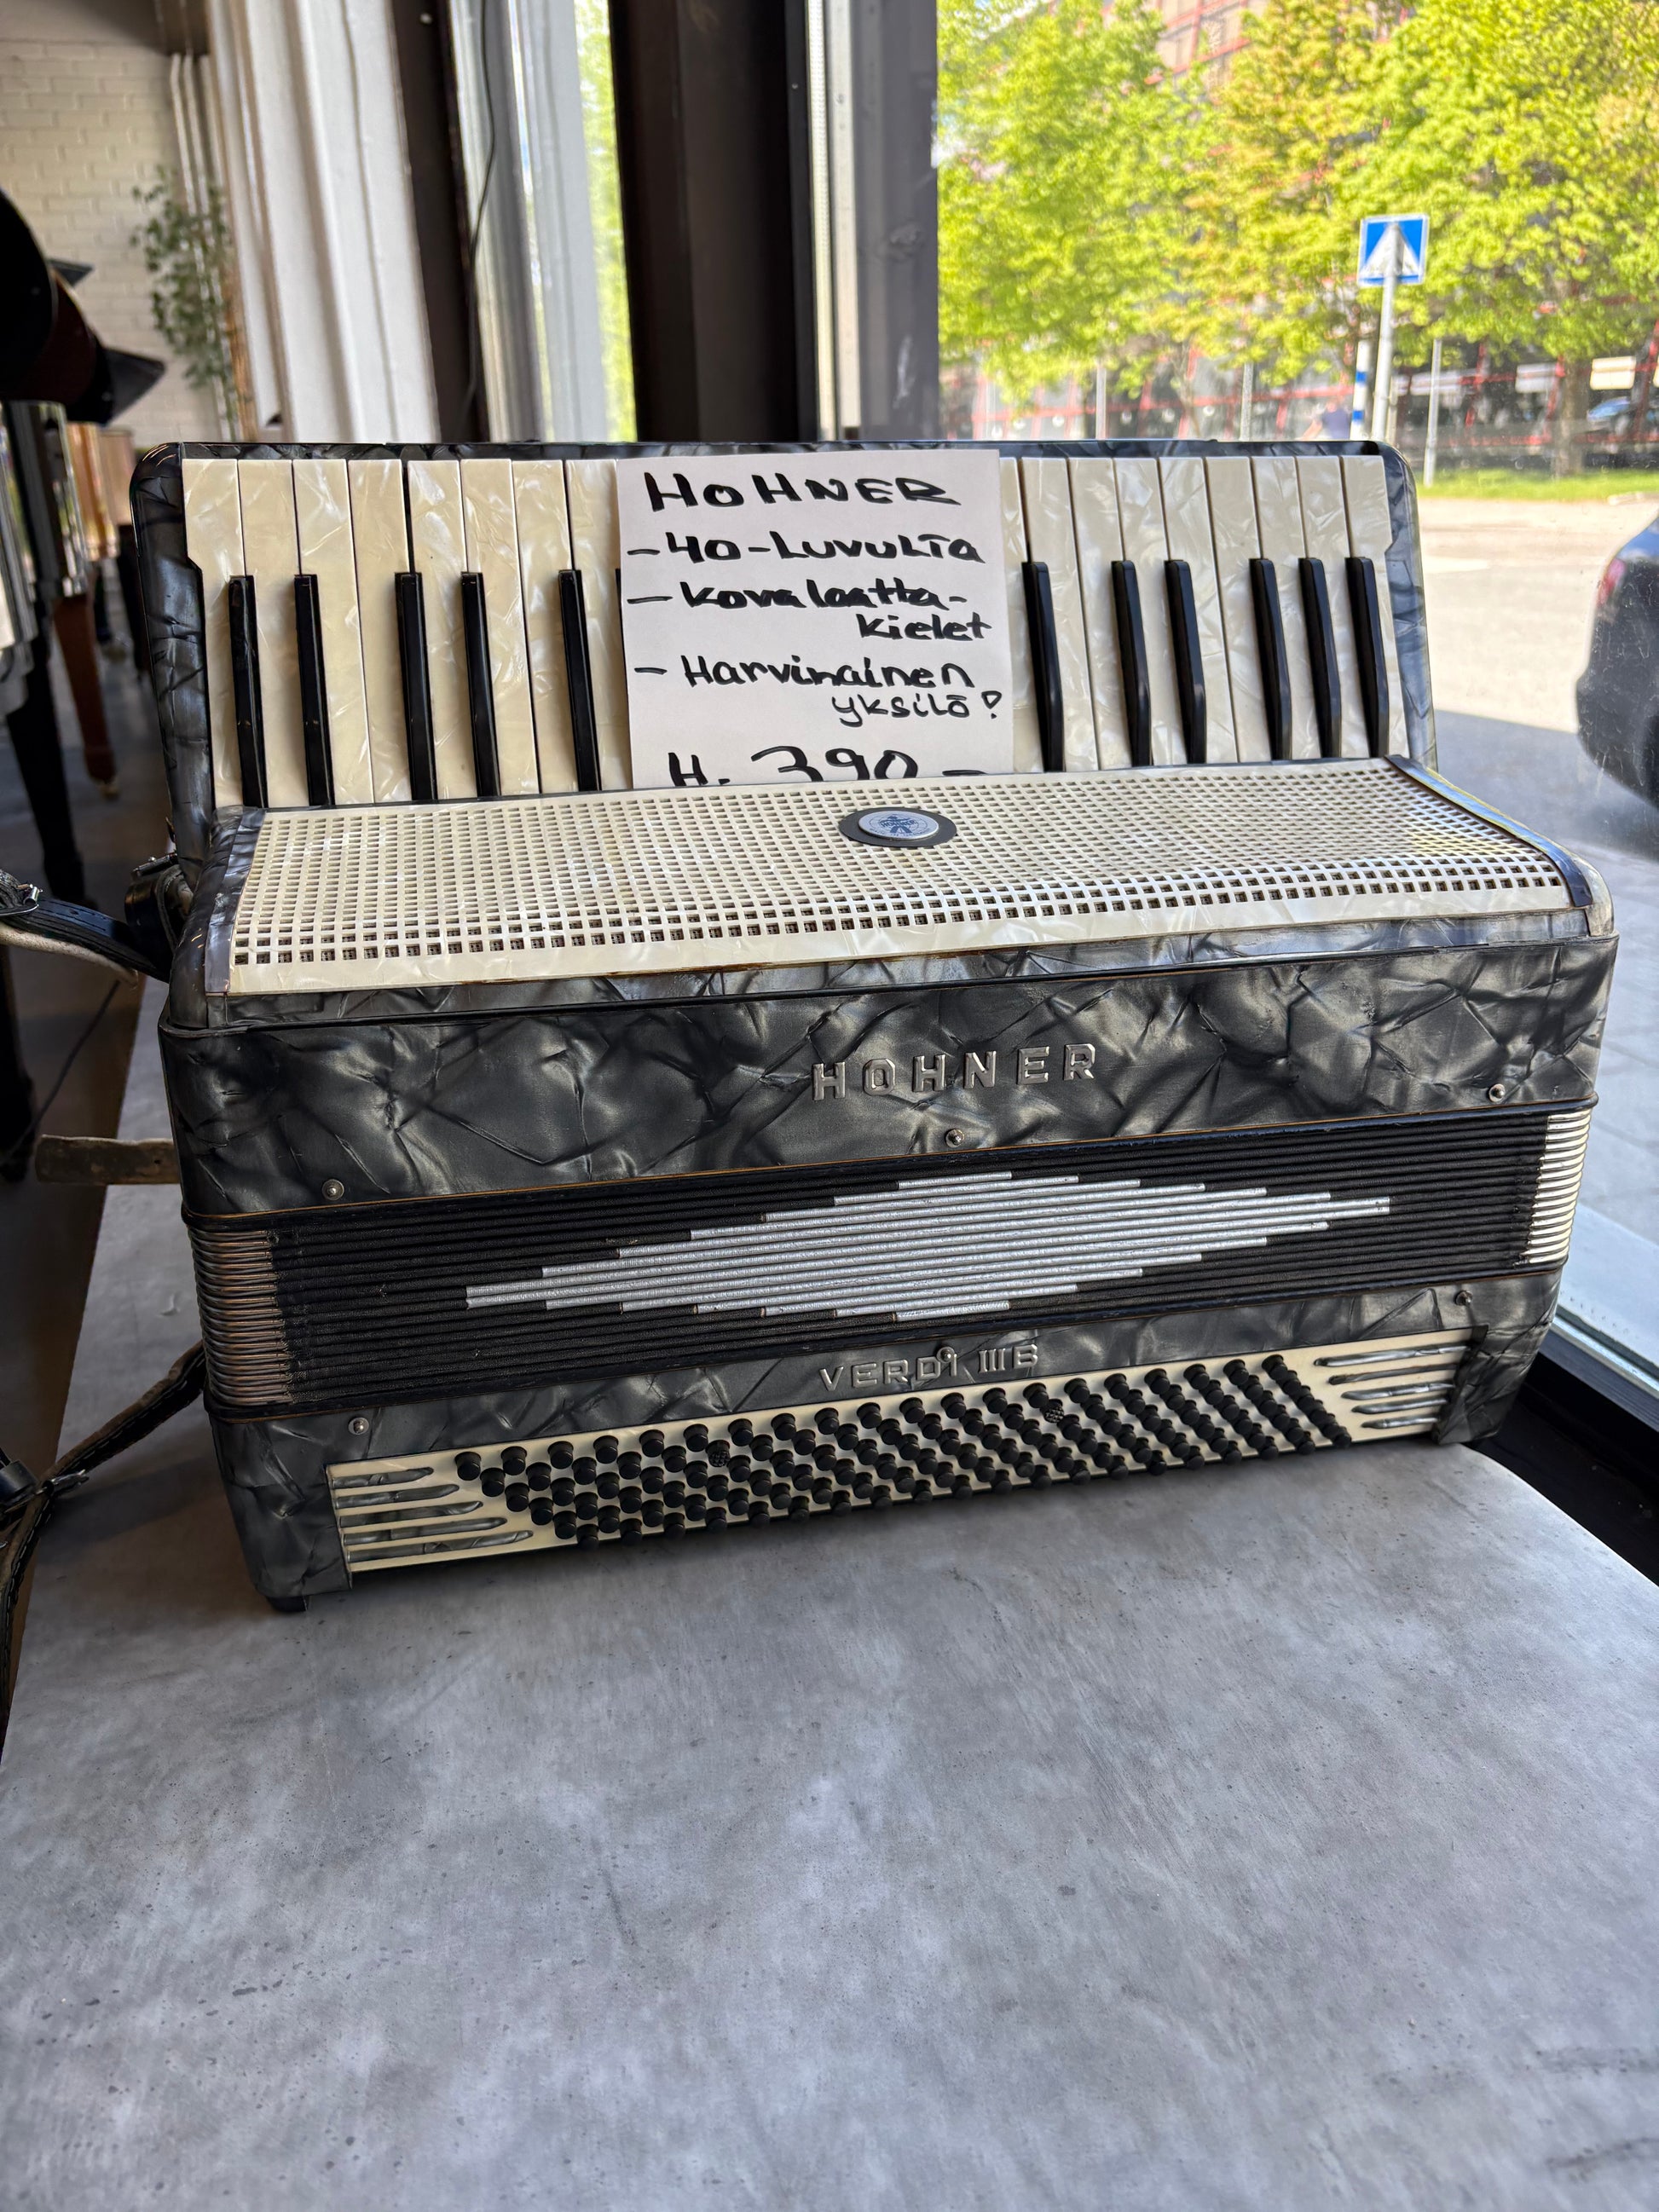 HOHNER
-40-LUVULTA
- Kovalaatta-
kielet
- Harvinainen
yksilö!
H. 390,-
HOHNER
VERDI III B